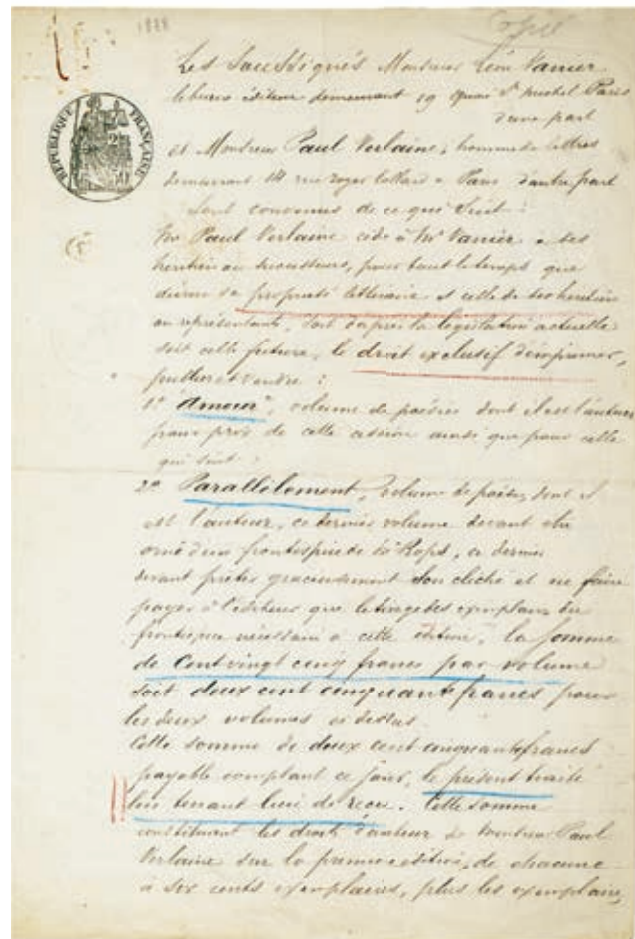 1888
Copie
RÉPUBLIQUE FRANÇAISE
Les Soussignés Monsieur Léon Vanier
libraire éditeur demeurant 19 Quai St Michel Paris
d'une part
et Monsieur Paul Verlaine, homme de lettres
demeurant 14 rue Royer Collard à Paris d'autre part
Sont convenus de ce qui Suit :
Mr Paul Verlaine cède à Mr Vanier à ses
héritiers ou successeurs, pour tout le temps que
durera sa propriété littéraire et celle de ses héritiers
ou représentants, soit d'après la législation actuelle
soit celle future, le droit exclusif d'imprimer,
publier et vendre :
1º "Amour", volume de poésies dont il est l'auteur
prix de cette cession ainsi que pour celle
qui suit :
2º Parallèlement, volume de poésies, dont il
est l'auteur, ce dernier volume devant être
orné d'un frontispice de Mr Rops, ce dernier
devant prêter gracieusement son cliché et ne faire
payer à l'éditeur que le tirage des exemplaires du
frontispice nécessaire à cette édition, la somme
de Cent vingt cinq francs par volume
soit deux cent cinquante francs pour
les deux volumes ci dessus
Cette somme de deux cent cinquante francs
payable comptant ce jour, le présent traité
lui tenant lieu de reçu. Cette somme
constituant les droits d'auteur de Monsieur Paul
Verlaine sur la première édition, de chacune
à six cents exemplaires, plus les exemplaires